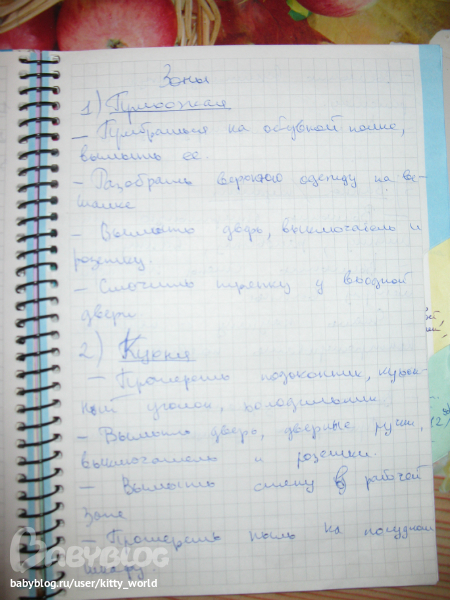 Зоны
1) Прихожая
- Прибраться на обувной полке,
вымыть ее.
- Разобрать верхнюю одежду на ве-
шалке
- Вымыть дверь, выключатель и
розетку.
- Смочить тряпку у входной
двери
2) Кухня
- Протереть подоконник, кухон-
ный уголок, холодильник.
- Вымыть дверь, дверные ручки,
выключатель и розетки.
- Вымыть стену в рабочей
зоне
- Протереть пыль на посудном
шкафу
BABYBLOG
babyblog.ru/user/kitty_world